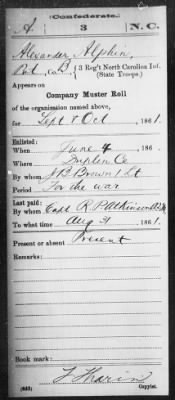 Confederate.
A. 3 N.C.
Alexander Alphin,
Pvt, Co. B, 3 Reg't North Carolina Inf.
(State Troops.)
Appears on
Company Muster Roll
of the organization named above,
for Sept & Oct, 1861.
Enlisted:
When June 4, 186 .
Where Duplin Co
By whom J B Brown 1 Lt
Period For the war
Last paid:
By whom Capt R. P. Atkinson
To what time Aug 31, 1861.
Present or absent Present
Remarks:
Book mark:
(642)
Copyist.